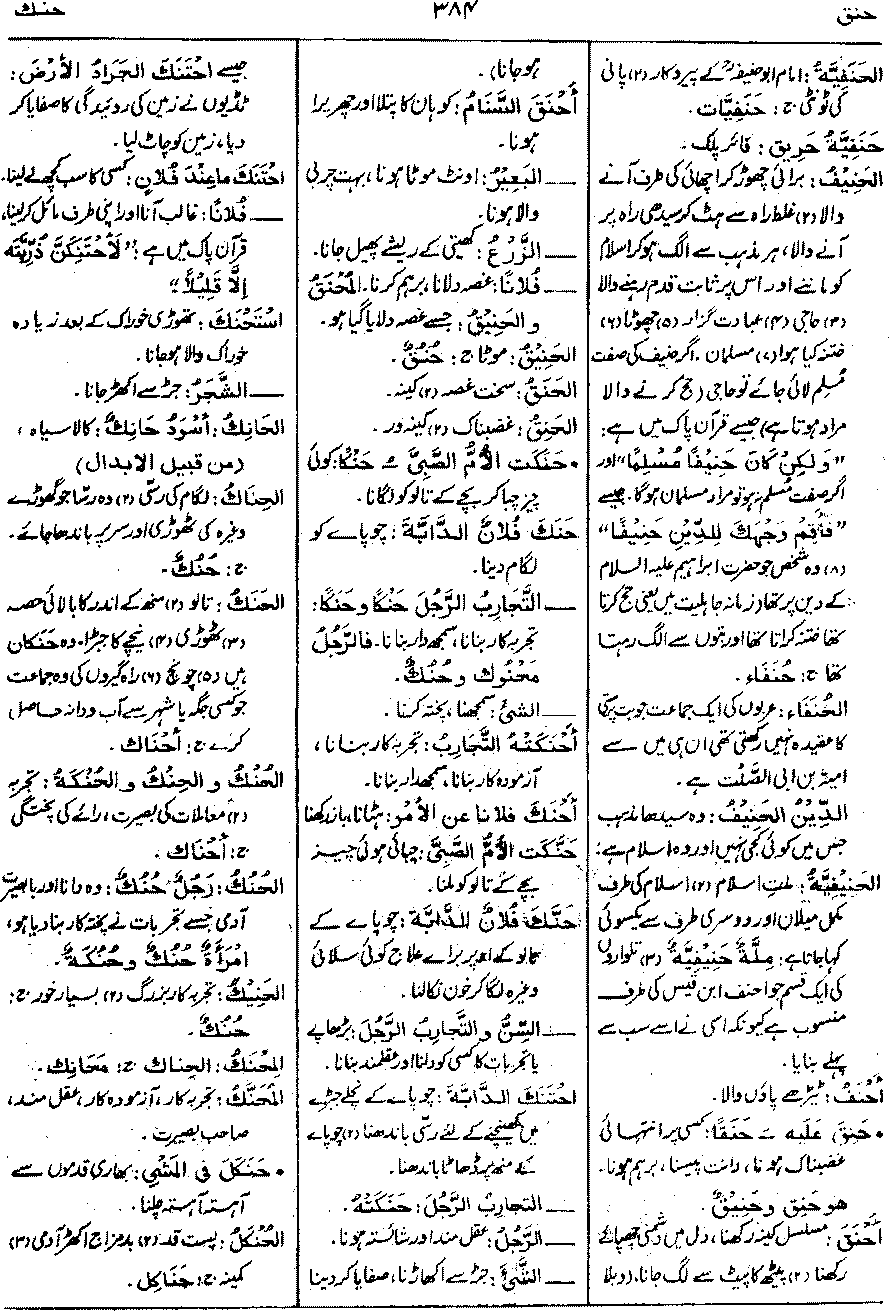 حنق
۳۸۴
حنك
الحَنَفِيَّةُ: امام ابوحنیفہؒ کے پیروکار (۲) پانی
کی ٹونٹی ج: حَنَفِيَّات۔
حَنَفِيَّةُ حَرِيق: فائر پلگ۔
الحَنِيْفُ: برائی چھوڑ کر اچھائی کی طرف آنے
والا (۲) غلط راہ سے ہٹ کر سیدھی راہ پر
آنے والا، ہر مذہب سے الگ ہو کر اسلام
کو ماننے اور اس پر ثابت قدم رہنے والا
(۳) حاجی (۴) عبادت گزار (۵) چھوٹا (۶)
ختنہ کیا ہوا (۷) مسلمان۔ اگر حنیف کی صفت
مُسلِم لائی جائے تو حاجی (حج کرنے والا
مراد ہوتا ہے) جیسے قرآن پاک میں ہے:
”وَلٰكِنْ كَانَ حَنِيفًا مُسْلِمًا“ اور
اگر صفت مُسلم نہ ہو تو مراد مسلمان ہوگا۔ جیسے
”فَأَقِمْ وَجْهَكَ لِلدِّيْنِ حَنِيفًا“
(۸) وہ شخص جو حضرت ابراہیم علیہ السلام
کے دین پر تھا، زمانہ جاہلیت میں یعنی حج کرتا
تھا ختنہ کراتا تھا اور بتوں سے الگ رہتا
تھا ج: حُنَفَاء۔
الحُنَفَاء: عربوں کی ایک جماعت جو بت پرستی
کا عقیدہ نہیں رکھتی تھی ان ہی میں سے
امیہ بن ابی الصَّلت ہے۔
الدِّيْنُ الحَنِيفُ: وہ سیدھا مذہب
جس میں کوئی کجی نہیں اور وہ اسلام ہے۔
الحَنِيْفِيَّةُ: ملتِ اسلام (۲) اسلام کی طرف
مکمل میلان اور دوسری طرف سے یکسوئی
کہا جاتا ہے: مِلَّةٌ حَنِيْفِيَّةٌ (۳) تلواروں
کی ایک قسم جو احنف ابن قیس کی طرف
منسوب ہے کیونکہ اسی نے اسے سب سے
پہلے بنایا۔
أَحْنَفُ: ٹیڑھے پاؤں والا۔
• حَنِقَ عَلَيه ـَـ حَنَقًا: کسی پر انتہائی
غضبناک ہونا، دانت پیسنا، برہم ہونا۔
هو حَنِق وحَنِيْقٌ۔
أَحْنَقَ: مسلسل کینہ رکھنا، دل میں دشمنی چھپائے
رکھنا (۲) پیٹھ کا پیٹ سے لگ جانا۔ (دبلا
ہو جانا)۔
أَحْنَقَ السَّنَامُ: کوہان کا پتلا اور چھریرا
ہونا۔
ــــ البَعِيْرُ: اونٹ موٹا ہونا، بہت چربی
والا ہونا۔
ــــ الزَّرْعُ: کھیتی کے ریشے پھیل جانا۔
ــــ فُلانًا: غصہ دلانا، برہم کرنا۔ المُحْنَقُ
و الحَنِيْقُ: جسے غصہ دلایا گیا ہو۔
الحَنِيْقُ: موٹا ج: حُنُقٌ۔
الحَنَقُ: سخت غصہ (۲) کینہ۔
الحَنِقُ: غضبناک (۲) کینہ ور۔
• حَنَكَتِ الأُمُّ الصَّبِيَّ ـُـ حَنْكًا: کوئی
چیز چبا کر بچے کے تالو کو لگانا۔
حَنَكَ فُلَانٌ الدَّابَّةَ: چوپائے کو
لگام دینا۔
ــــ التَّجَارِبُ الرَّجُلَ حَنْكًا وحَنَكًا:
تجربہ کار بنانا، سمجھدار بنانا۔ فالرَّجُلُ
مَحْنُوك وحُنُكٌ۔
ــــ الشئَ: سمجھنا، پختہ کرنا۔
أَحْنَكَتْهُ التَّجَارِبُ: تجربہ کار بنانا،
آزمودہ کار بنانا، سمجھدار بنانا۔
أَحْنَكَ فلانا عن الأمْرِ: ہٹانا، باز رکھنا
حَنَّكَتِ الأُمُّ الصَّبِيَّ: چبائی ہوئی چیز
بچے کے تالو کو ملنا۔
حَنَّكَ فُلَانٌ الدَّابَّةَ: چوپائے کے
تالو کے اوپر برائے علاج کوئی سلائی
وغیرہ لگا کر خون نکالنا۔
ــــ السِّنُّ والتَّجارِبُ الرَّجُلَ: بڑھاپے
یا تجربات کا کسی کو دانا اور عقلمند بنانا۔
احْتَنَكَ الدَّابَّةَ: چوپائے کے نچلے جبڑے
میں کھینچنے کے لئے رسّی باندھنا (۲) چوپائے
کے منھ پر ڈھاٹا باندھنا۔
ــــ التجارِبُ الرَّجُلَ: حَنَّكَتْهُ۔
ــــ الرَّجُلُ: عقل مند اور شائستہ ہونا۔
ــــ الشَّيْءَ: جڑ سے اکھاڑنا، صفایا کر دینا
جیسے احْتَنَكَ الجَرَادُ الأَرْضَ:
ٹڈیوں نے زمین کی روئیدگی کا صفایا کر
دیا، زمین کو چاٹ لیا۔
احْتَنَكَ ما عِنْدَ فُلَانٍ: کسی کا سب کچھ لے لینا۔
ــــ فُلَانًا: غالب آنا اور اپنی طرف مائل کر لینا،
قرآن پاک میں ہے: ”لَأَحْتَنِكَنَّ ذُرِّيَّتَهُ
إِلَّا قَلِيْلًا“
اسْتَحْنَكَ: تھوڑی خوراک کے بعد زیادہ
خوراک والا ہو جانا۔
ــــ الشَّجَرُ: جڑ سے اکھڑ جانا۔
الحَانِكُ: أَسْوَدُ حَانِكٌ: کالا سیاہ،
(من قبیل الابدال)
الحِناكُ: لگام کی رسّی (۲) وہ رسّا جو گھوڑے
وغیرہ کی ٹھوڑی اور سر پر باندھا جائے۔
ج: حُنُكٌ۔
الحَنَكُ: تالو (۲) منھ کے اندر کا بالائی حصہ
(۳) ٹھوڑی (۴) نیچے کا جبڑا۔ وہ حَنَكان
ہیں (۵) چونچ (۶) راہ گیروں کی وہ جماعت
جو کسی جگہ یا شہر سے آب و دانہ حاصل
کرے ج: أَحْنَاك۔
الحُنْكُ و الحِنْكُ و الحُنْكَةُ: تجربہ
(۲) معاملات کی بصیرت، رائے کی پختگی
ج: أَحْنَاك۔
الحُنُكُ: رَجُلٌ حُنُكٌ: وہ دانا اور بابصیرت
آدمی جسے تجربات نے پختہ کار بنا دیا ہو،
امْرَأَةٌ حُنُكٌ وحُنُكَةٌ۔
الحَنِيْكُ: تجربہ کار بزرگ (۲) بسیار خور ج:
حُنُكٌ۔
المِحْنَكُ: الحِناك ج: مَحَانِك۔
المُحَنَّكُ: تجربہ کار، آزمودہ کار، عقل مند،
صاحب بصیرت۔
• حَنْكَلَ فِي المَشْيِ: بھاری قدموں سے
آہستہ آہستہ چلنا۔
الحَنْكَلُ: پست قد (۲) بدمزاج اکھڑ آدمی (۳)
کمینہ ج: حَنَاكِل۔